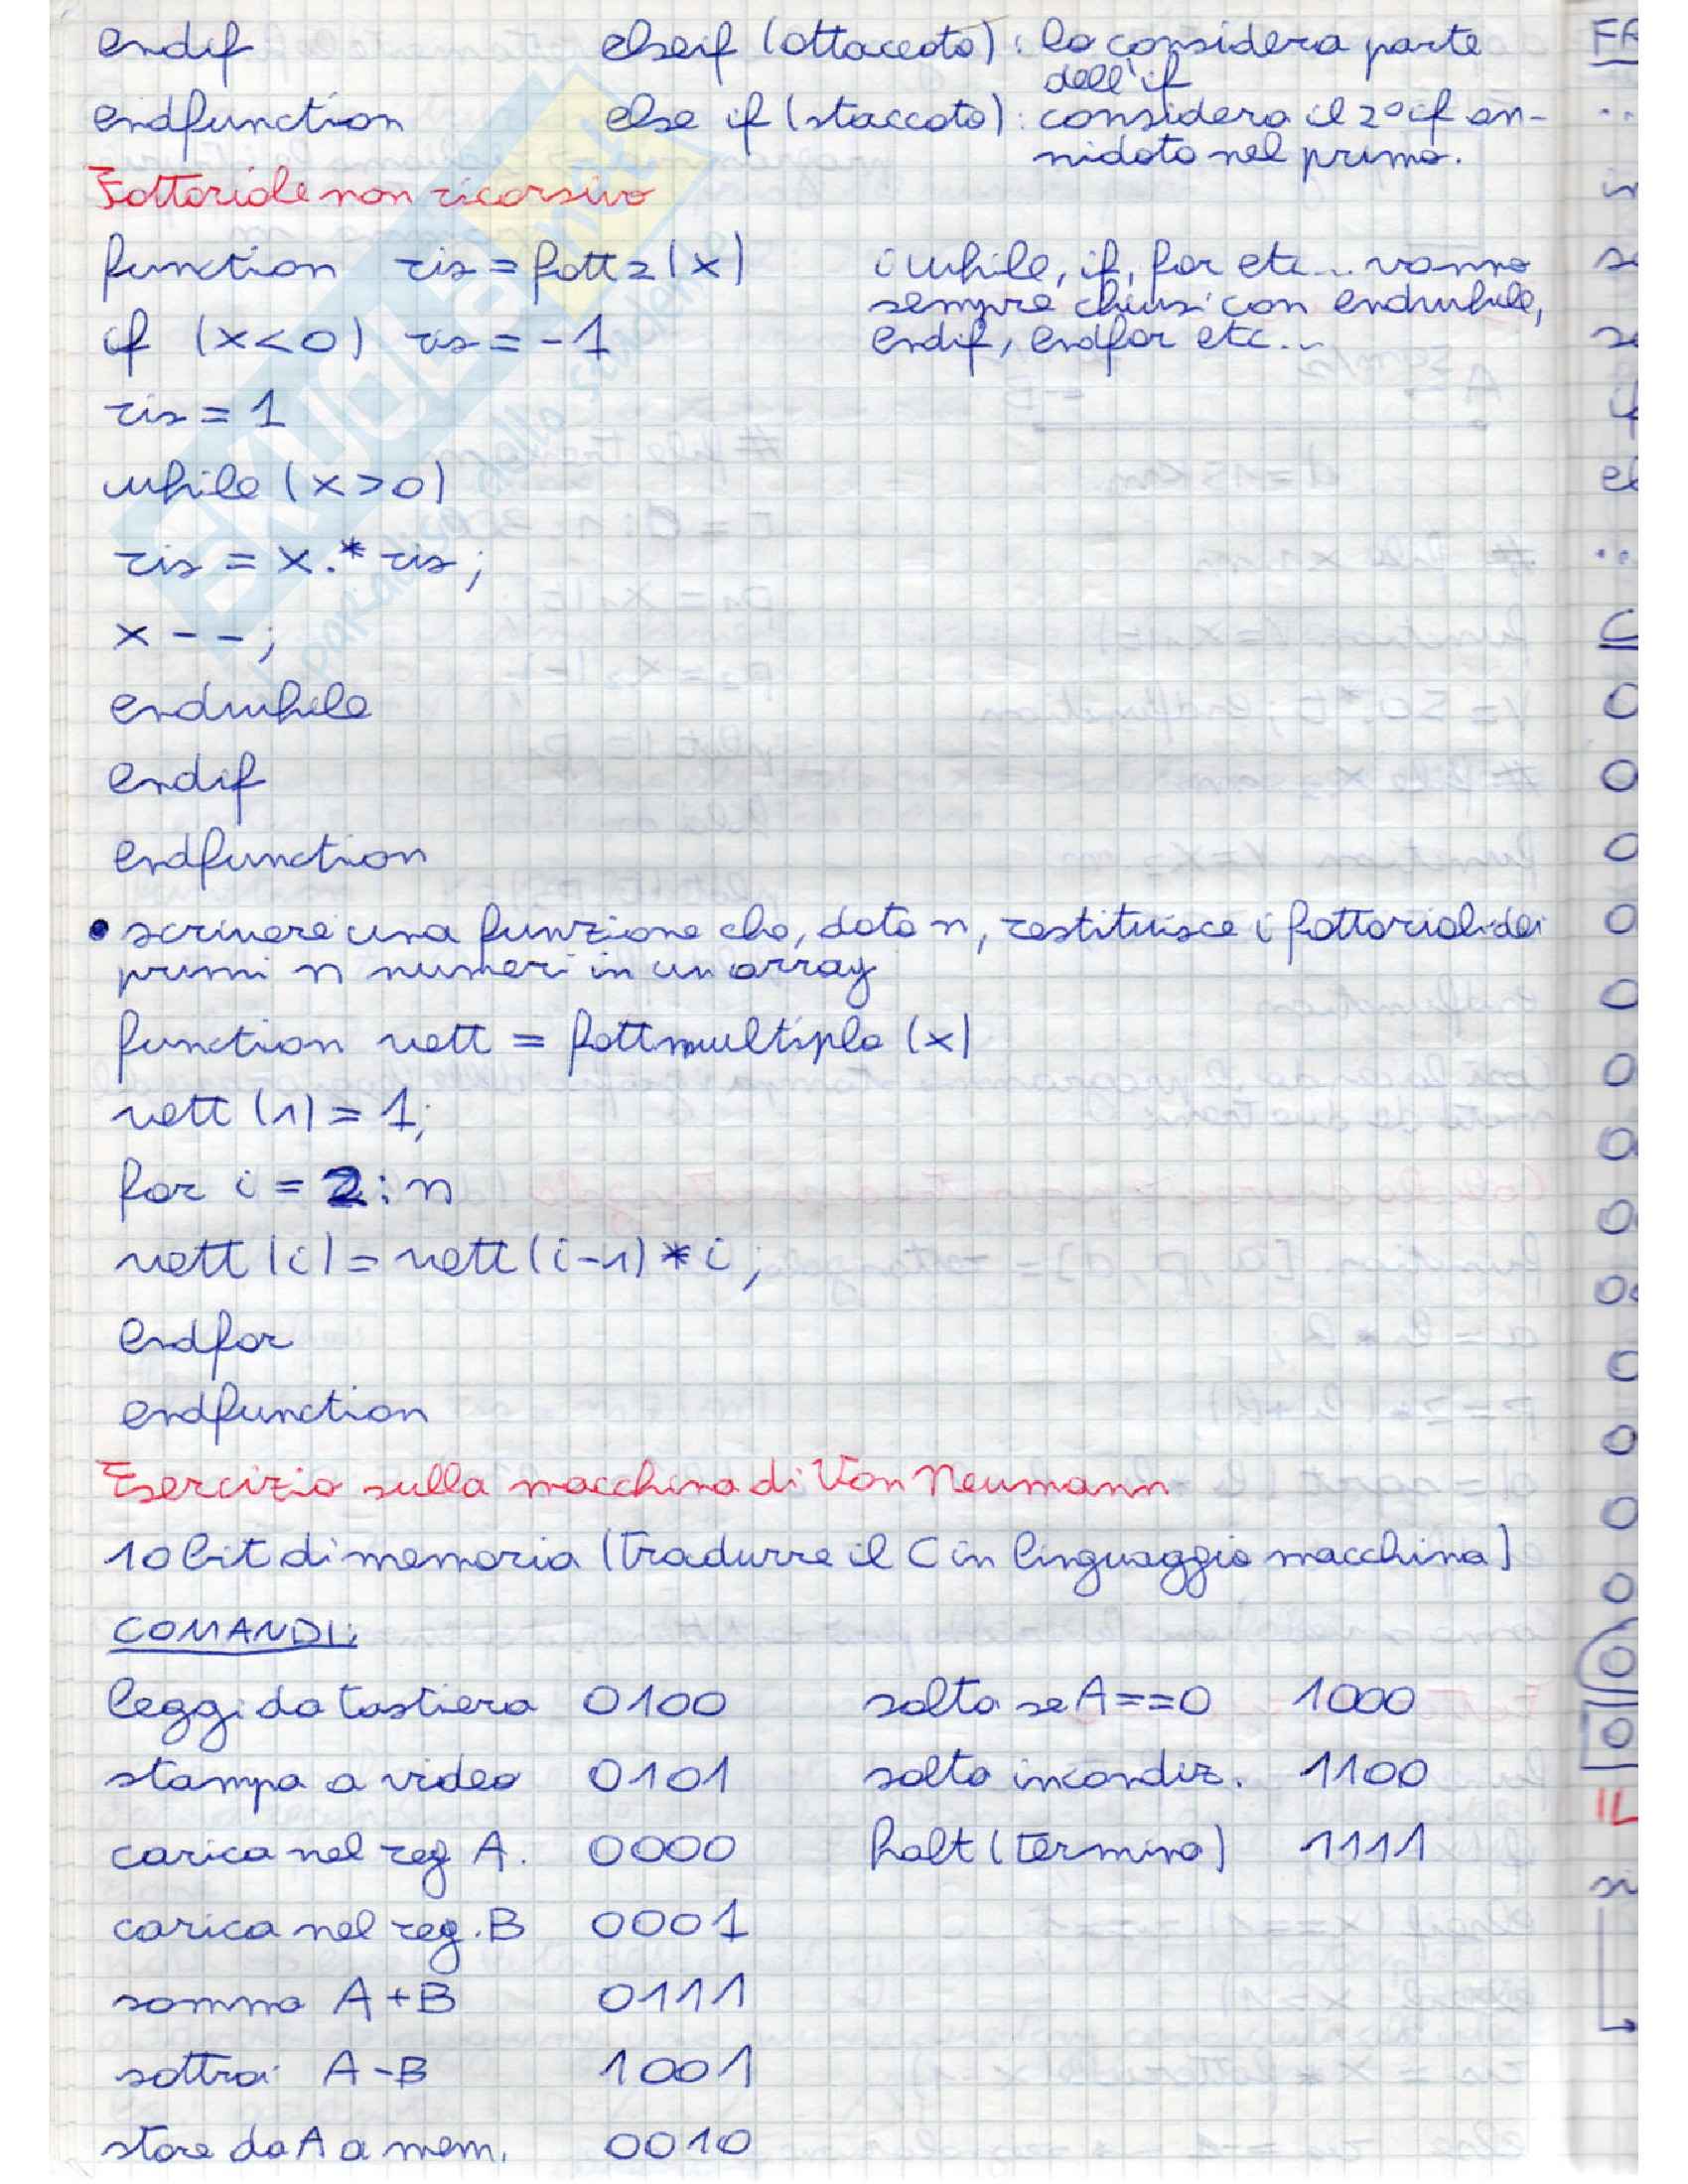 endif
elseif (attaccato): lo considera parte
dell'if
endfunction
else if (staccato): considera il 2° if an-
nidato nel primo.
Fattoriale non ricorsivo
function ris = fatt2(x)
i while, if, for etc... vanno
sempre chiusi con endwhile,
endif, endfor etc...
if (x<0) ris = -1
ris = 1
while (x>0)
ris = x.* ris;
x--;
endwhile
endif
endfunction
• scrivere una funzione che, dato n, restituisce i fattoriali dei
primi n numeri in un array
function vett = fattmultiplo (x)
vett (1) = 1;
for i = 2:n
vett (i) = vett (i-1) * i;
endfor
endfunction
Esercizio sulla macchina di Von Neumann
10 bit di memoria (tradurre il C in linguaggio macchina)
COMANDI:
leggi da tastiera 0100
salto se A==0 1000
stampa a video 0101
salto incondiz. 1100
carica nel reg A. 0000
halt (termina) 1111
carica nel reg. B 0001
somma A+B 0111
sottrai A-B 1001
store da A a mem. 0010